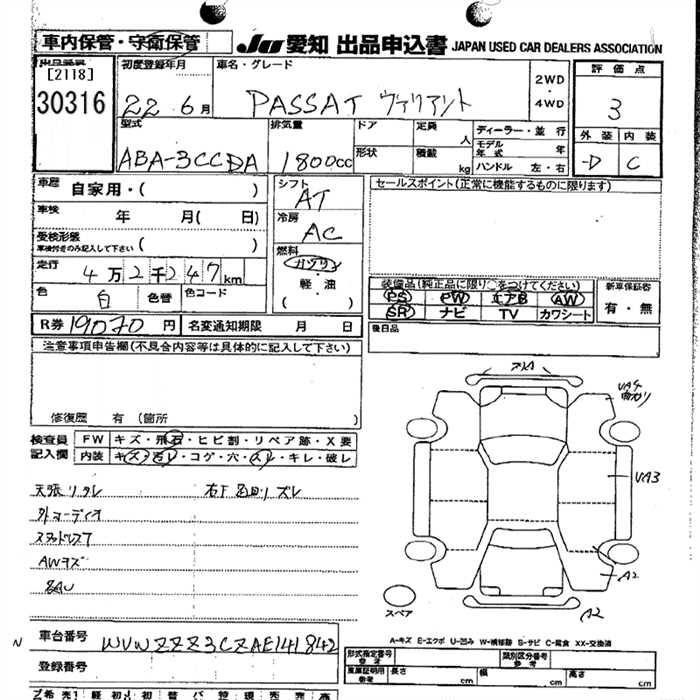 車内保管・守衛保管
JU 愛知 出品申込書 JAPAN USED CAR DEALERS ASSOCIATION
出品番号
[2118]
30316
初度登録年月
22.6月
車名・グレード
PASSAT ヴァリアント
2WD
・
4WD
評価点
3
外装 内装
-D C
型式
ABA-3CCDA
排気量
1800cc
ドア
形状
定員 人
積載 kg
ディーラー・並行
モデル年式 年
ハンドル 左・右
車歴 自家用・( )
車検 年 月( 日
受検形態
車検付きのみ記入して下さい ( )
走行 4万2千247km
色 白 色替 色コード
シフト
AT
冷房
AC
燃料
ガソリン
・
軽・油
( )
セールスポイント(正常に機能するものに限ります)
装備品(純正品に限り○をつけてください)
PS PW エアB AW
SR ナビ TV カワシート
新車保証書
有・無
後日品
R券 19070円 名変通知期限 月 日
注意事項申告欄(不具合内容等は具体的に記入して下さい)
修復歴 有(箇所 )
検査員記入欄
FW キズ・飛石・ヒビ割・リペア跡・X要
内装 キズ・汚レ・コゲ・穴・スレ・キレ・破レ
天張リタレ
外オーディオ
スタッドレス7
AWキズ
VA3
A2
A2
スペア
A-キズ E-エクボ U-凹み W-補修跡 S-サビ C-腐食 XX-交換済
車台番号 WVWZZZ3CZAE141842
登録番号
形式指定番号
参考
類別区分番号
参考
車庫証明用
参考
長さ cm 幅 cm 高さ cm
N